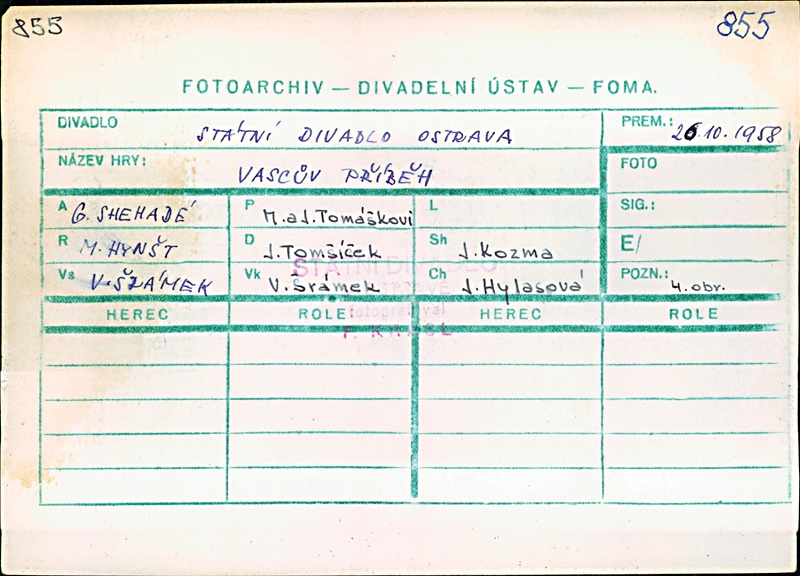 855
855
FOTOARCHIV — DIVADELNÍ ÚSTAV — FOMA.
DIVADLO STÁTNÍ DIVADLO OSTRAVA PREM.: 26.10.1958
NÁZEV HRY: VASCŮV PŘÍBĚH FOTO
A G. SHEHADÉ P M.aJ.Tomáškovi L SIG.:
R M. HYNŠT D J.Tomšíček Sh J.Kozma E/
Vs V. ŠRÁMEK Vk V.Šrámek Ch J.Hylasová POZN.: 4.obr.
STÁTNÍ DIVADLO
fotografoval
HEREC ROLE HEREC ROLE